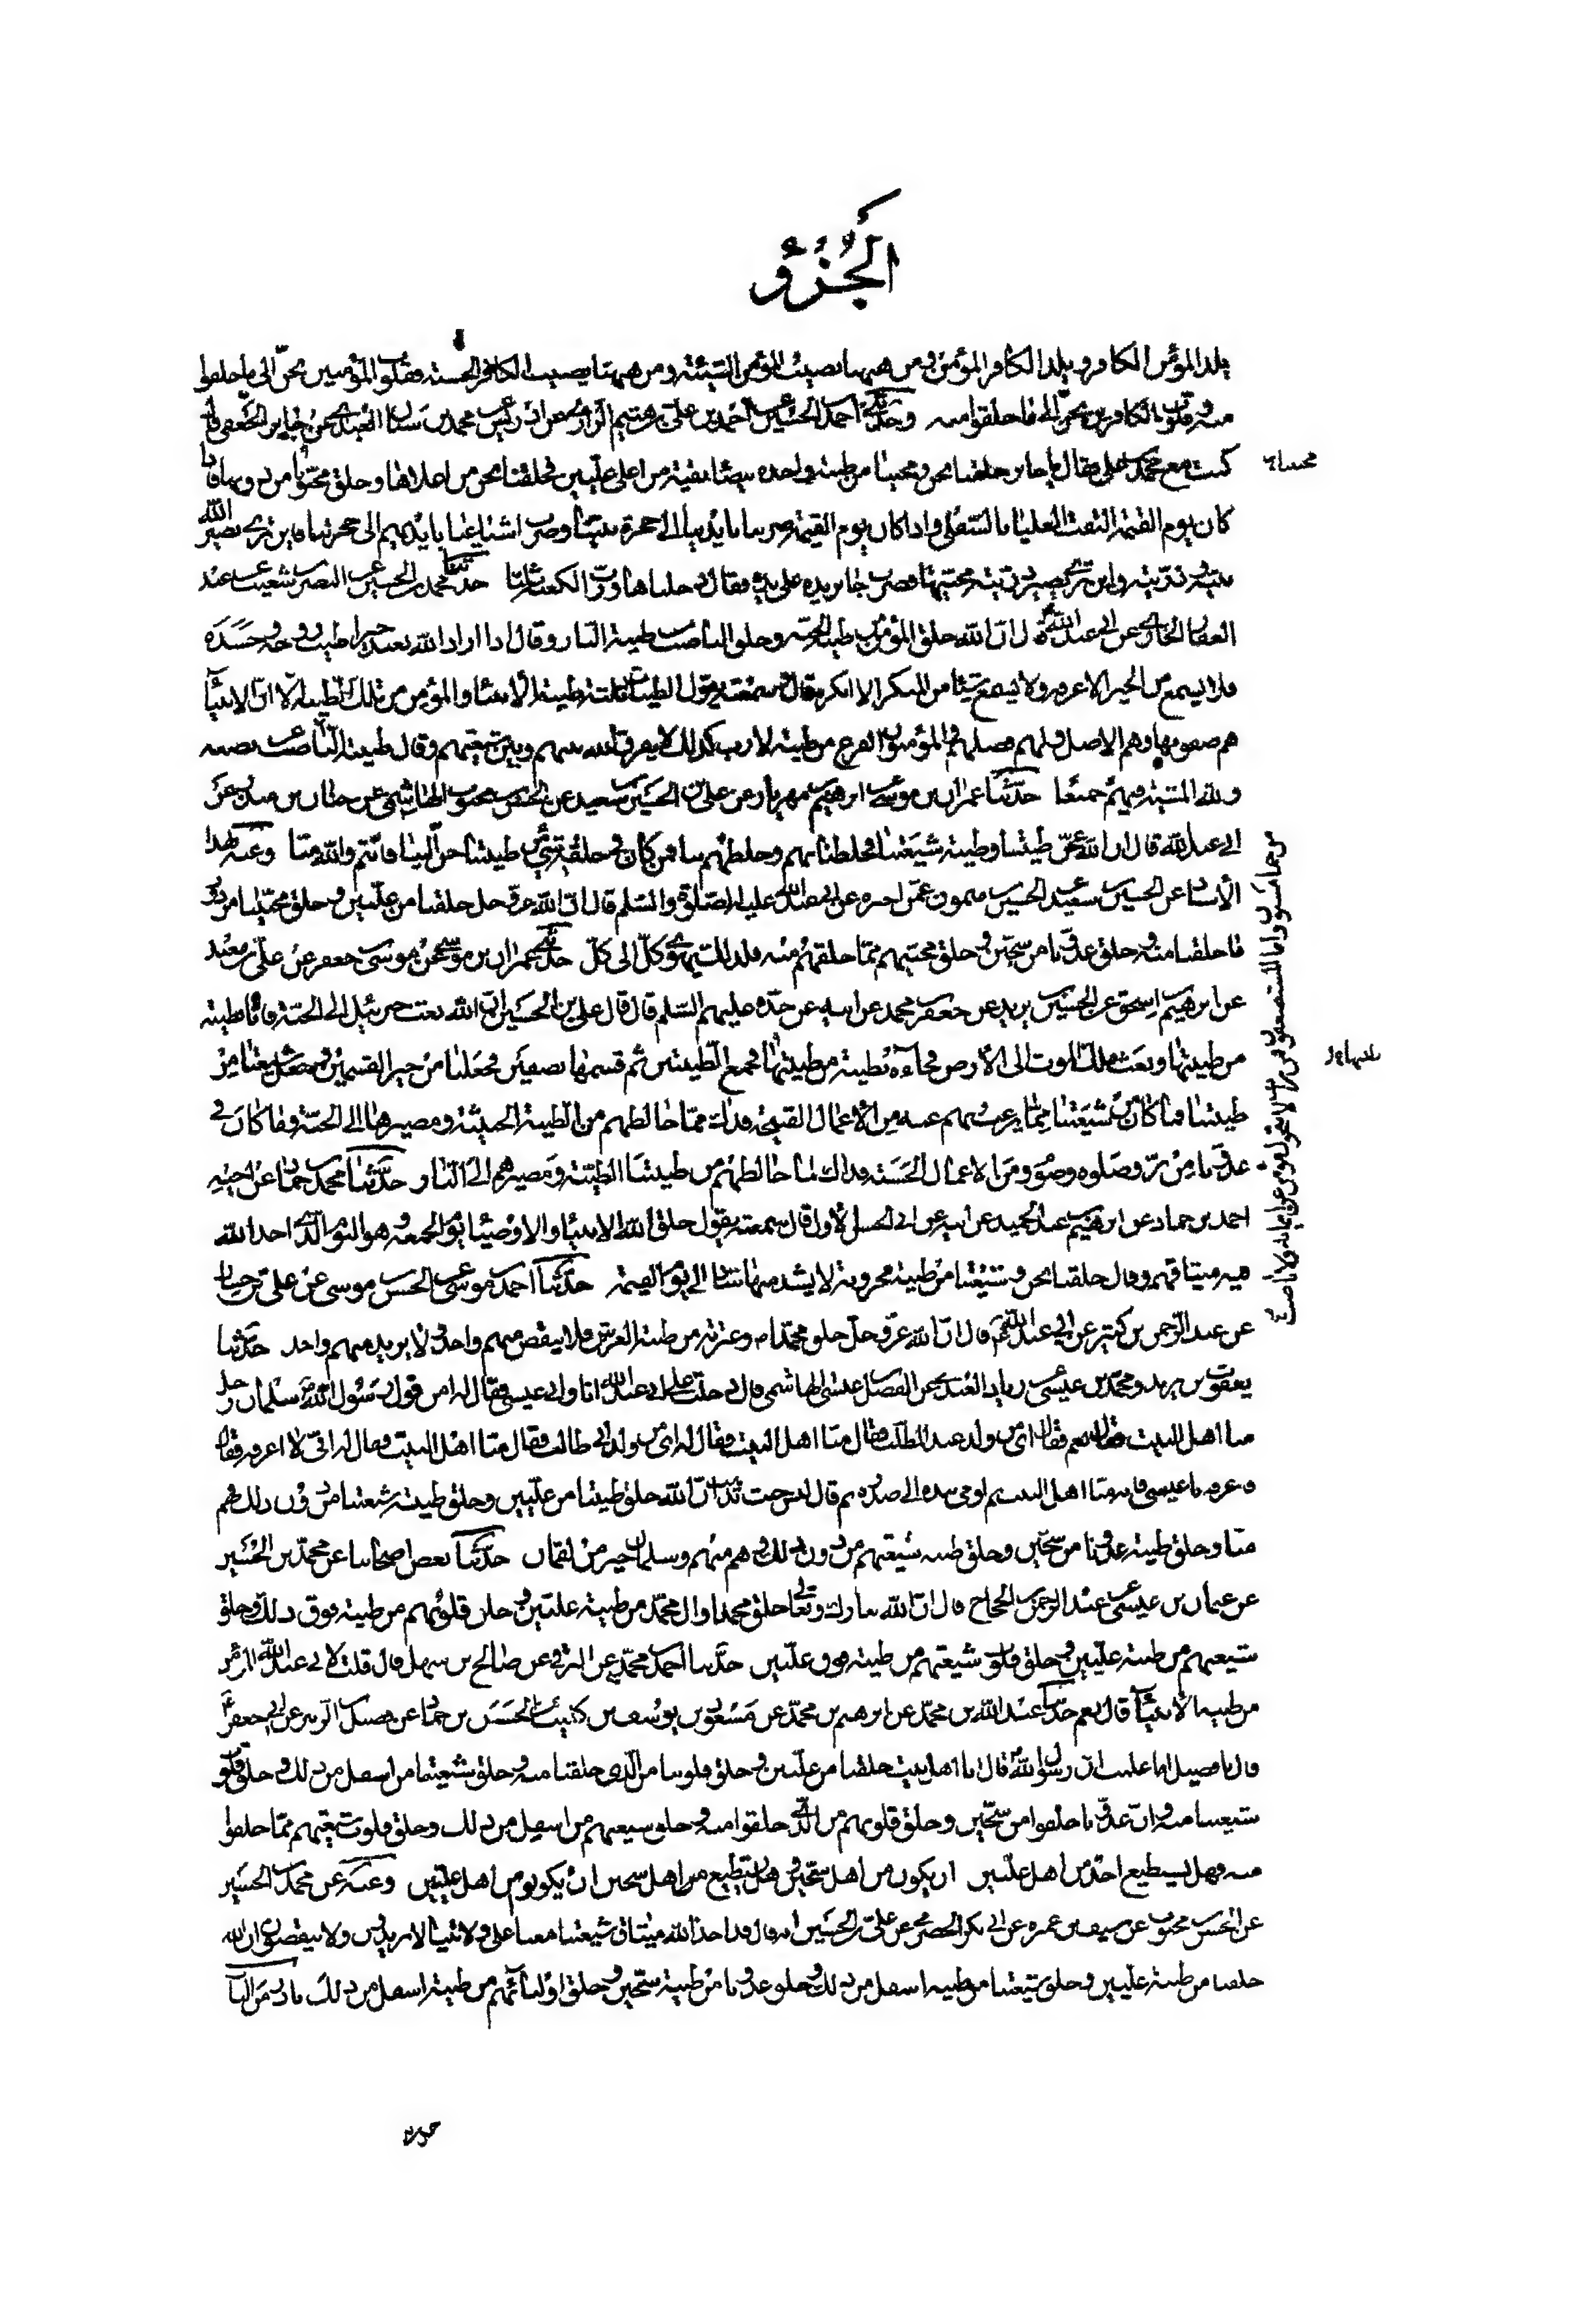 الجُزْؤ
يلد المؤمن الكافر ويلد الكافر المؤمن ومن ههنا يصيب المؤمن السّيئة ومن ههنا يصيب الكافر الحسنة فقلوب المؤمنين تحنّ الى ما خلقوا
منه وقلوب الكافرين تحنّ الى ما خلقوا منه وحدثني احمد بن الحسين عن احمد بن علي بن هيثم الرازي عن ادريس عن محمد بن سنان العبدي عن جابر الجعفي قال
كنت مع محمد بن علي فقال يا جابر خلقنا نحن ومحبينا من طينة واحدة بيضاء نقية من اعلى عليين فخلقنا نحن من اعلاها وخلق محبونا من دونها فاذا
كان يوم القيمة التفت العليا بالسفلى واذا كان يوم القيمة ضربنا بايدينا الى حجزة نبينا وضرب اشياعنا بايديهم الى حجزتنا فاين ترى يصير الله
نبيه وذريته واين ترى يصير ذريته محبيها فضرب جابر يده على يده فقال دخلناها ورب الكعبة ثلاثا حدثنا محمد بن الحسين عن النضر بن شعيب عن عبد
الغفار الجازي عن ابي عبد الله قال ان الله خلق المؤمن من طينة الجنة وخلق الناصب من طينة النار وقال اذا اراد الله بعبد خيرا طيب روحه وجسده
فلا يسمع من الخير الا عرفه ولا يسمع شيئا من المنكر الا انكره قال وسمعته يقول الطينات ثلثة طينة الانبياء والمؤمن من تلك الطينة الا ان الانبياء
هم صفوتها وهم الاصل ولهم فضلهم والمؤمنون الفرع من طينة لازب كذلك لا يفرق الله بينهم وبين شيعتهم وقال طينة الناصب
ولله المشية فيهم جميعا حدثنا عمران بن موسى عن ابرهيم بن مهزيار عن علي عن الحسين بن سعيد عن الحسن بن محبوب الهاشمي عن حنان بن سدير عن
ابي عبد الله قال ان الله عجن طينتنا وطينة شيعتنا فخلطنا بهم وخلطهم بنا فمن كان في خلقه شيء من طينتنا حن الينا فانتم والله منا وعنه بهذا
الاسناد عن الحسين بن سعيد عن الحسين بن ميمون عمن اخبره عن ابي عبد الله عليه الصلوة والسلم قال ان الله عز وجل خلقنا من عليين وخلق محبينا من دون
ما خلقنا منه وخلق عدونا من سجين وخلق محبيهم مما خلقهم منه فلذلك يهوي كل الى كل حدثني عمران بن موسى عن موسى بن جعفر عن علي بن معبد
عن ابرهيم بن اسحق عن الحسين بن يزيد عن جعفر بن محمد عن ابيه عن جده عليهم السلم قال قال علي بن الحسين ان الله بعث جبرئيل الى الجنة فاتاه بطينة
من طينتها وبعث ملك الموت الى الارض فجاءه بطينة من طينتها فجمع الطينتين ثم قسمها نصفين فجعلنا من خير القسمين وجعل شيعتنا من
طينتنا فما كان من شيعتنا مما يرغب بهم عنه من الاعمال القبيحة فذاك مما خالطهم من الطينة الخبيثة ومصيرها الى الجنة وما كان في
عدونا من بر وصلوة وصوم ومن الاعمال الحسنة فذاك لما خالطهم من طينتنا الطيبة ومصيرهم الى النار حدثنا محمد بن حماد عن اخيه
احمد بن حماد عن ابرهيم بن عبد الحميد عن ابيه عن ابي الحسن الاول قال سمعته يقول خلق الله الانبياء والاوصياء يوم الجمعة وهو اليوم الذي اخذ الله
فيه ميثاقهم وقال خلقنا نحن وشيعتنا من طينة مخزونة لا يشذ منها شاذ الى يوم القيمة حدثنا احمد بن موسى عن الحسن بن موسى عن علي بن حسان
عن عبد الرحمن بن كثير عن ابي عبد الله قال ان الله عز وجل خلق محمدا وعترته من طينة العرش فلا ينقص منهم واحد ولا يزيد منهم واحد حدثنا
يعقوب بن يزيد ومحمد بن عيسى عن زياد العبدي عن الفضل بن عيسى الهاشمي قال دخلت على ابي عبد الله انا وابي عيسى فقال له امن قول رسول الله سلمان رجل
منا اهل البيت فقال نعم فقال اي من ولد عبد المطلب فقال منا اهل البيت فقال له اي من ولد ابي طالب فقال منا اهل البيت فقال له اني لا اعرفه فقال
فاعرفه يا عيسى فانه منا اهل البيت ثم اومى بيده الى صدره ثم قال ليس حيث تذهب ان الله خلق طينتنا من عليين وخلق طينة شيعتنا من دون ذلك فهم
منا وخلق طينة عدونا من سجين وخلق طينة شيعتهم من دون ذلك وهم منهم وسلمان خير من لقمان حدثنا بعض اصحابنا عن محمد بن الحسين
عن عثمان بن عيسى عن عبد الرحمن بن الحجاج قال ان الله تبارك وتعالى خلق محمدا وال محمد من طينة عليين وخلق قلوبهم من طينة فوق ذلك وخلق
شيعتهم من طينة عليين وخلق قلوب شيعتهم من طينة فوق عليين حدثنا احمد بن محمد عن البرقي عن صالح بن سهل قال قلت لابي عبد الله المؤمن
من طينة الانبياء قال نعم حدثنا عبد الله بن محمد عن ابرهيم بن محمد عن مسعود بن يوسف بن كليب عن الحسن بن حماد عن فضيل بن الزبير عن ابي جعفر
قال يا فضيل اما علمت ان رسول الله قال انا اهل بيت خلقنا من عليين وخلق قلوبنا من الذي خلقنا منه وخلق شيعتنا من اسفل من ذلك وخلق قلوب
شيعتنا منه وان عدونا خلقوا من سجين وخلق قلوبهم من الذي خلقوا منه وخلق شيعتهم من اسفل من ذلك وخلق قلوب شيعتهم مما خلقوا
منه فهل يستطيع احد من اهل عليين ان يكون من اهل سجين وهل يستطيع من اهل سجين ان يكونوا من اهل عليين وعنه عن محمد بن الحسين
عن الحسن بن محبوب عن سيف بن عميرة عن ابي بكر الحضرمي عن علي بن الحسين انه قال قد اخذ الله ميثاق شيعتنا معنا على ولايتنا لا يزيدون ولا ينقصون ان الله
خلقنا من طينة عليين وخلق شيعتنا من طينة اسفل من ذلك وخلق عدونا من طينة سجين وخلق اوليائهم من طينة اسفل من ذلك نادر من الباب